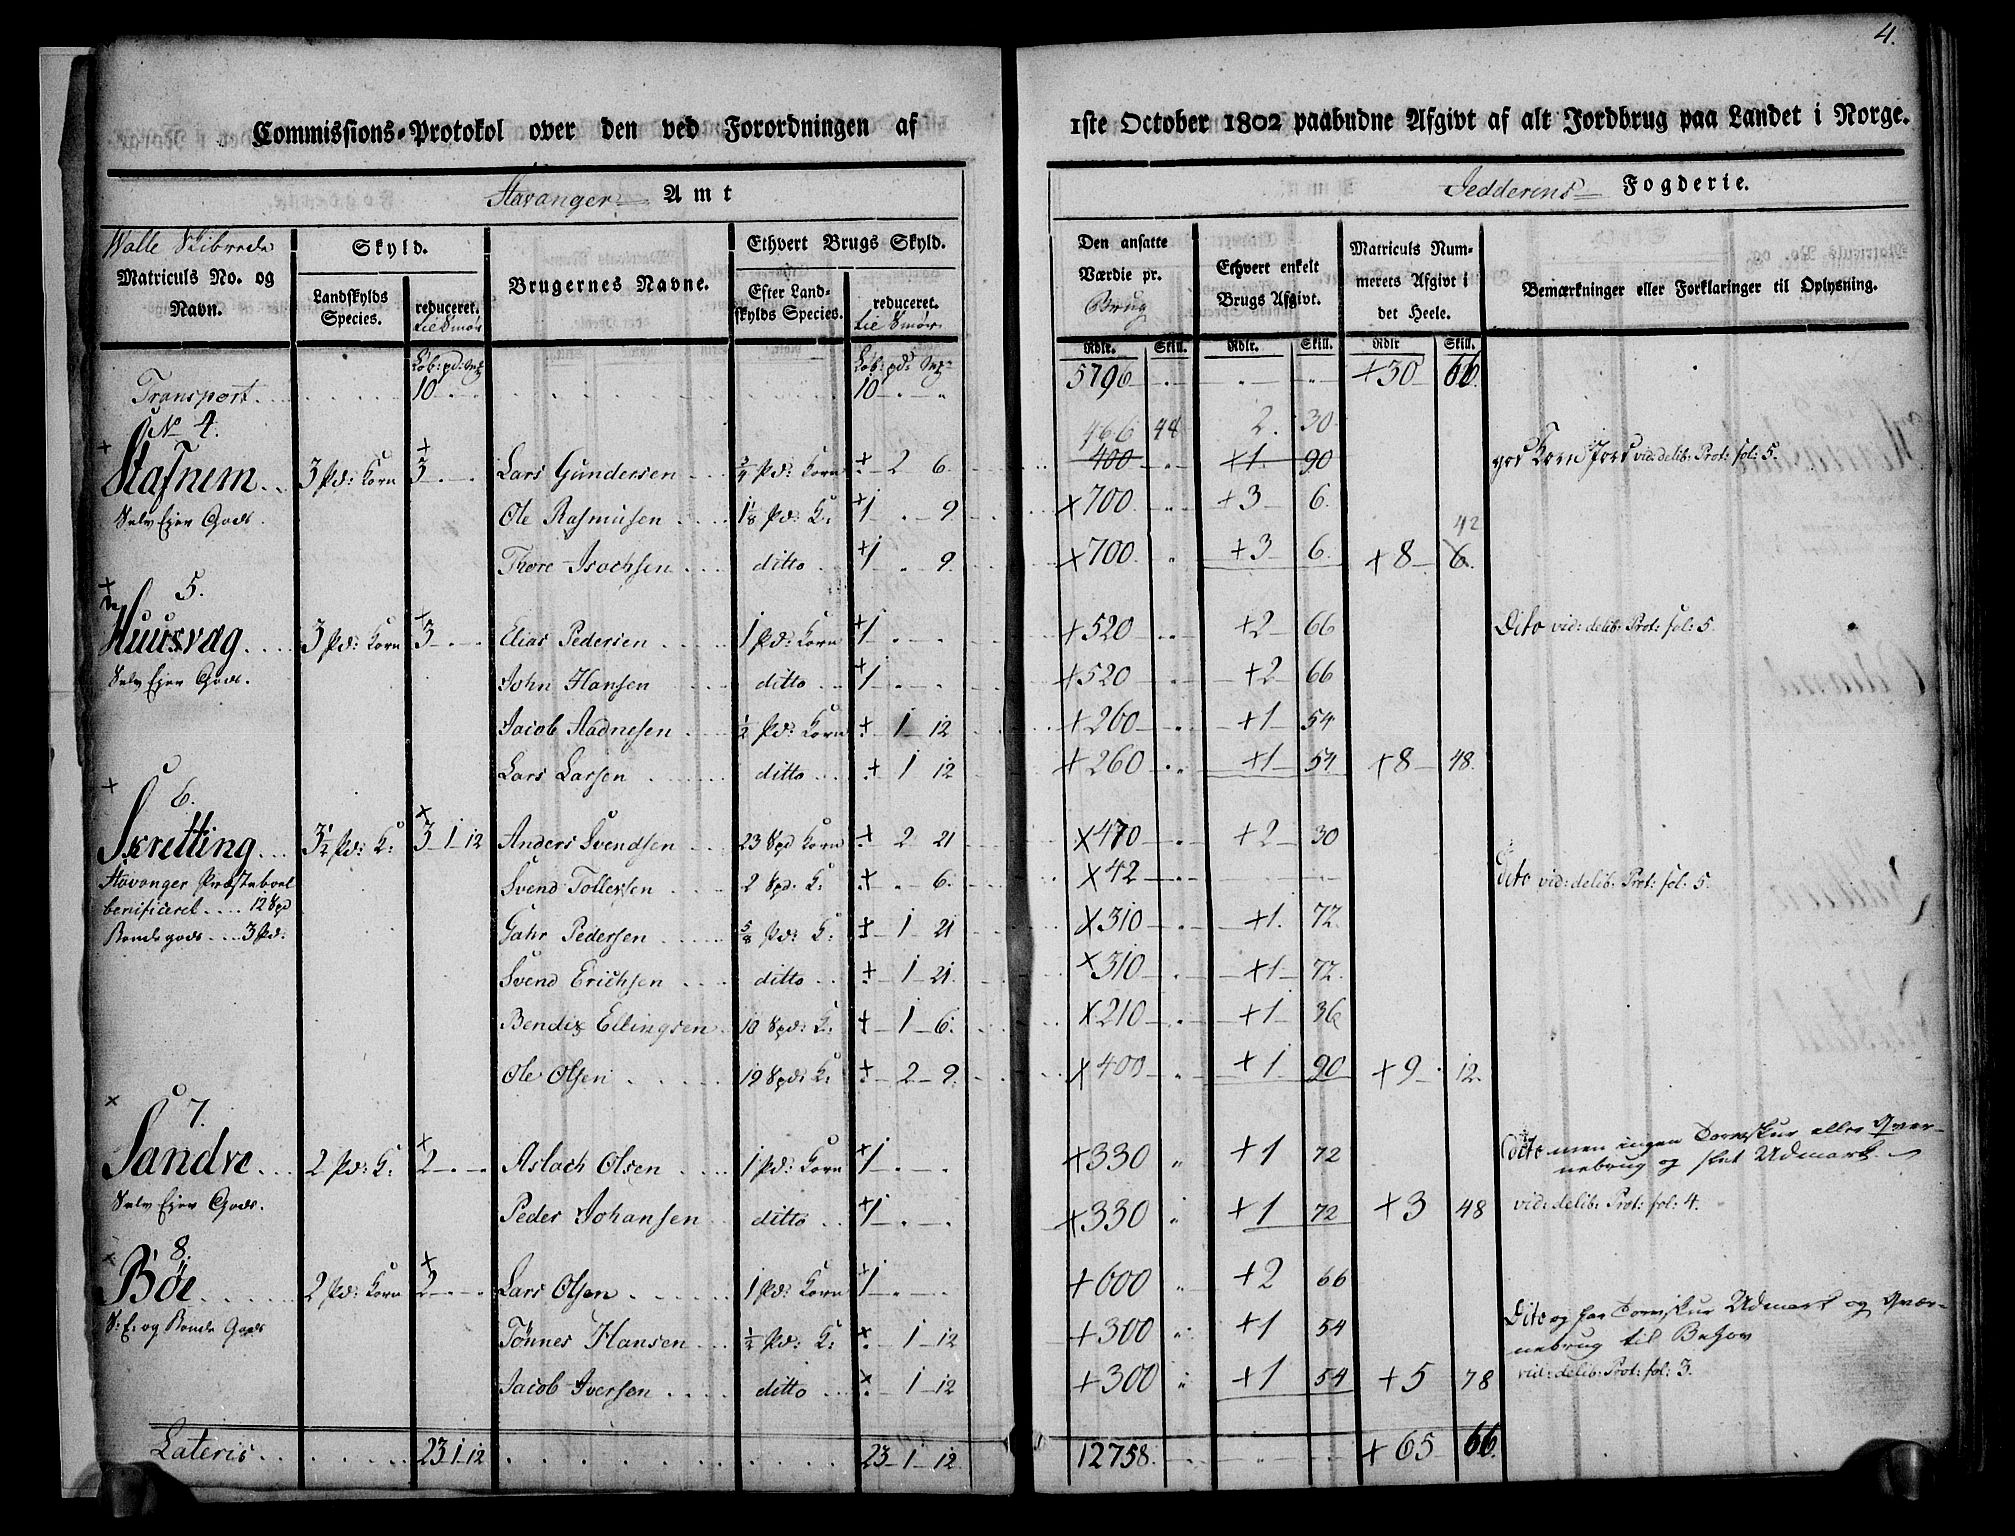 4.
Commissions-Protokol over den ved Forordningen af 1ste October 1802 paabudne Afgivt af alt Jordbrug paa Landet i Norge.
Stavanger Amt Jedderens Fogderie.
Walle Skibrede
Matriculs No. og Navn.
Skyld.
Landskylds Species.
reduceret.
Brugernes Navne.
Ethvert Brugs Skyld.
Efter Landskylds Species.
reduceret.
Den ansatte Værdie pr. Brug
Ethvert enkelt Brugs Afgivt.
Matriculs Nummerets Afgivt i det Heele.
Bemærkninger eller Forklaringer til Oplysning.
Rdlr. Skill. Rdlr. Skill. Rdlr Skill.
Transport 10 10 5796 +30 66
No 4. 466 48 2. 30
Stafnem 3 Pd: Korn 3 Lars Gundersen 3/4 Pd: Korn 2 6. 400 +1. 90 god Korn Jord vid: delib: Prot: fol: 5.
Selv Ejer Gods. Ole Rasmusen 1 1/8 Pd: K: 1 . 9 +700 +3 6.
42
Thore Isachsen ditto 1 . 9. +700 +3 6. +8 6.
5.
Huusvæg 3 Pd: Korn 3 Elias Pedersen 1 Pd: Korn 1 +520 +2 66 Dito vid: delib: Prot: fol: 5.
Selv Ejer Gods. John Hansen ditto 1 +520 +2 66
Jacob Aadnesen 1/2 Pd: Korn 1 12 +260 +1 54
Lars Larsen ditto 1 12 +260 +1 54 +8 48.
6.
Skretting 3 1/2 Pd: K: 3 1 12 Anders Svendsen 23 Spd Korn 2 21 +470 +2 30
Stavanger Præsteboel Svend Tollefsen 2 Spd. K: . 6. +42 Dito vid: delib: Prot: fol: 5.
benificeret 12 Spd
Bondegods 3 Pd: Gahr Pedersen 5/8 Pd: K: 1 21 +310 +1. 72.
Svend Erichsen ditto 1 21. +310 +1 72.
Bendix Ellingsen 10 Spd: K: 1 6. +210 +1 36
Ole Olsen 19 Spd: K: 2 9. +400 +1 90 +9 12.
7.
Sandve 2 Pd: K: 2 Aslach Olsen 1 Pd: Korn 1 +330 +1 72 Dito men ingen Tørvskur eller Qvernebrug og slet Udmark.
Selv Ejer Gods. Peder Johansen ditto 1 +330 +1 72 +3 48 vid: delib: Prot: fol: 4.
8.
Bøe 2 Pd: Korn 2 Lars Olsen 1 Pd: Korn 1 +600 +2 66
S: E: og Bonde Gods Tønnes Hansen 1/2 Pd: K: 1 12 +300 +1 54 Dito og har Tørvskur Udmark og Qværnebrug til Behov
Jacob Iversen ditto 1 12 +300 +1 54 +5 78 vid: delib: Prot: fol: 3.
Lateris 23 1 12 23 1 12 12758. +65 66.